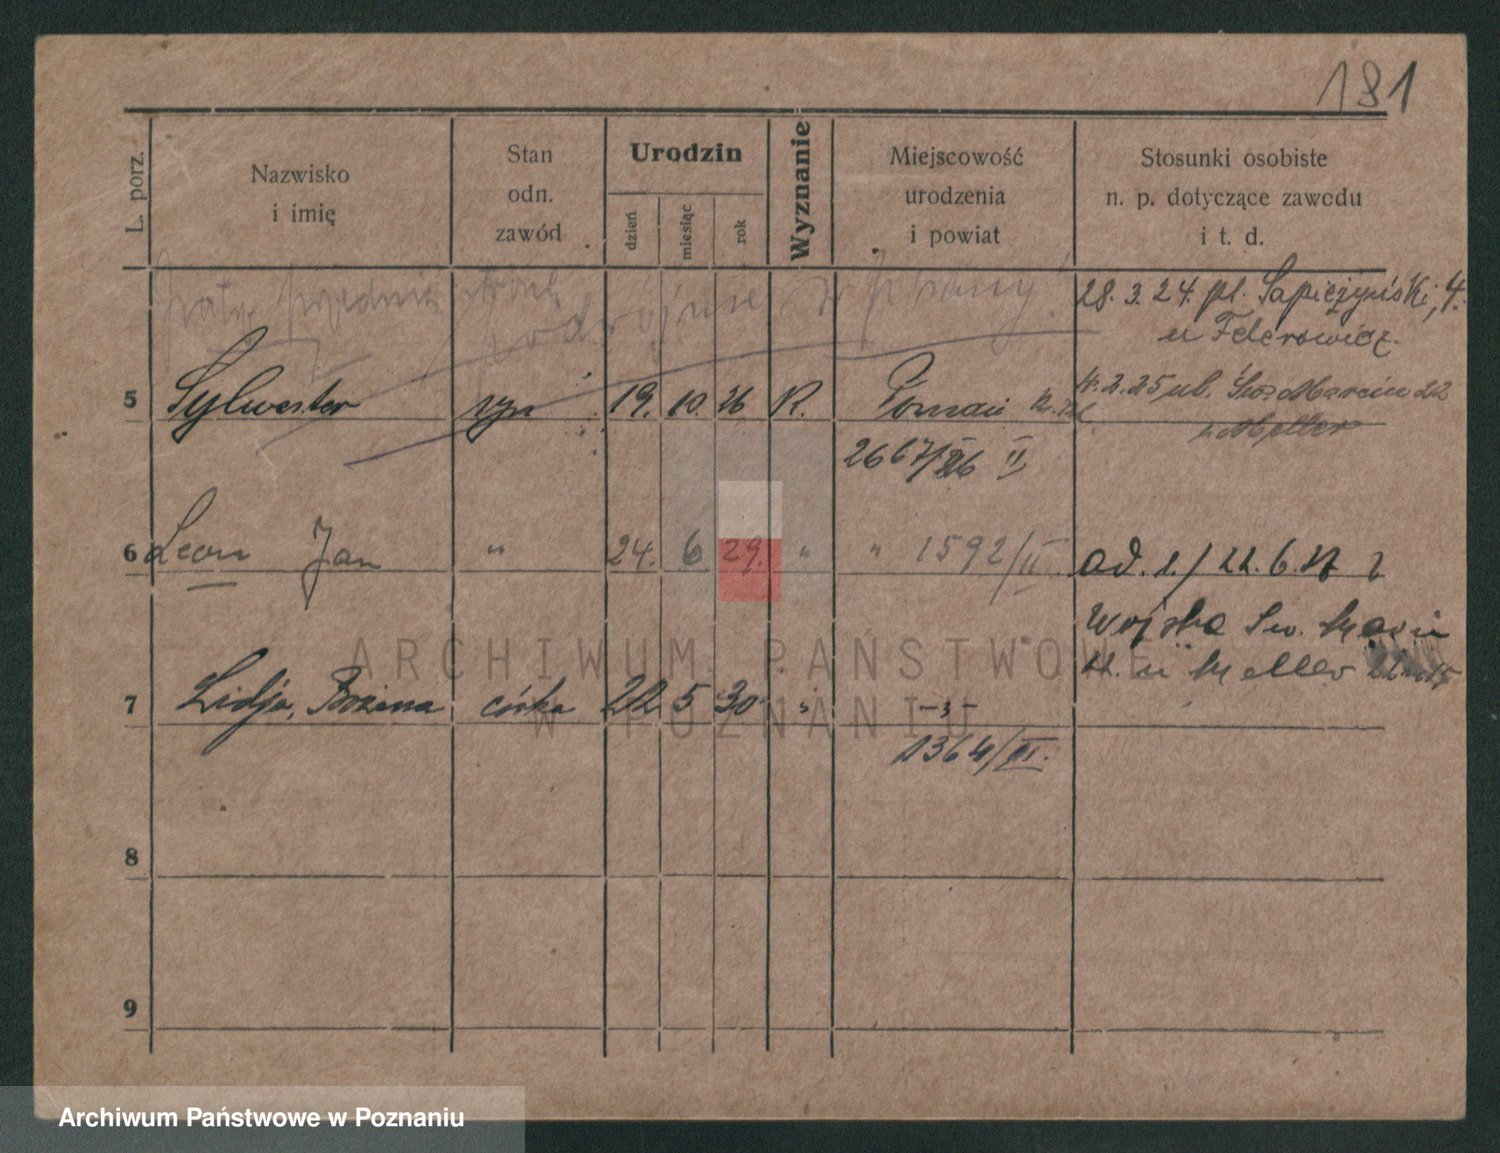 181
L. porz.
Nazwisko
i imię
Stan
odn.
zawód
Urodzin
dzień
miesiąc
rok
Wyznanie
Miejscowość
urodzenia
i powiat
Stosunki osobiste
n. p. dotyczące zawodu
i t. d.
podwójnie wpisany!
28. 3. 24. pl. Sapieżyński, 4.
u Federowicz.
5 Sylwester syn 19. 10. 26 R. Poznań 2.25 ul. Św. Marcin 22
u Meller
2667/26 II
6 Leon Jan " 24. 6 29. " " 1592/II od. 1./22.6.
Wojska Św. Marcin
u Meller
7 Lidja, Bożena córka 22 5 30 " -"-
1364/III.
8
9
ARCHIWUM PAŃSTWOWE
W POZNANIU
Archiwum Państwowe w Poznaniu